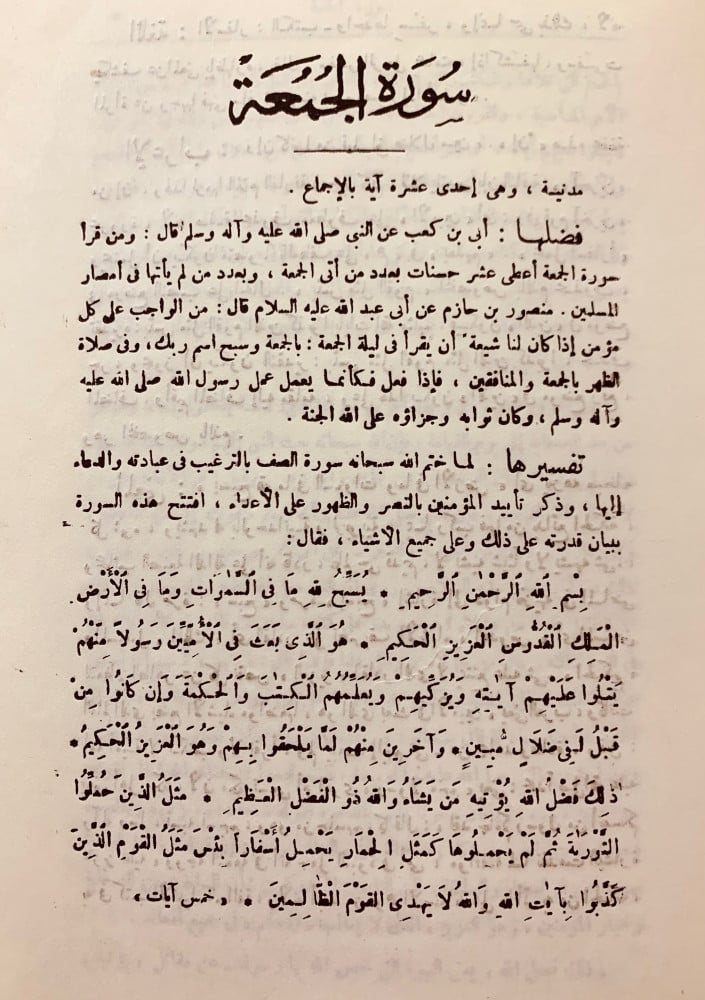 سُورَة الجُمُعَة
مدنية ، وهى إحدى عشرة آية بالإجماع .
فضلها : أبي بن كعب عن النبي صلى الله عليه وآله وسلم قال : ومن قرأ
سورة الجمعة أعطى عشر حسنات بعدد من أتى الجمعة ، وبعدد من لم يأتها فى أمصار
المسلمين . منصور بن حازم عن أبى عبد الله عليه السلام قال : من الواجب على كل
مؤمن إذا كان لنا شيعة أن يقرأ فى ليلة الجمعة : بالجمعة وسبح اسم ربك ، وفى صلاة
الظهر بالجمعة والمنافقين ، فإذا فعل فكأنما يعمل عمل رسول الله صلى الله عليه
وآله وسلم ، وكان ثوابه وجزاؤه على الله الجنة .
تفسيرها : لما ختم الله سبحانه سورة الصف بالترغيب فى عبادته والدعاء
إليها ، وذكر تأييد المؤمنين بالنصر والظهور على الأعداء ، افتتح هذه السورة
ببيان قدرته على ذلك وعلى جميع الأشياء ، فقال :
بِسْمِ ٱللهِ ٱلرَّحْمٰنِ ٱلرَّحِيمِ * يُسَبِّحُ لِلهِ مَا فِى ٱلسَّمٰوَاتِ وَمَا فِى ٱلْأَرْضِ
الْمَلِكِ الْقُدُّوسِ الْعَزِيزِ الْحَكِيمِ * هُوَ الَّذِى بَعَثَ فِى الْأُمِّيِّنَ رَسُولاً مِّنْهُمْ
يَتْلُوا عَلَيْهِمْ آيَـٰتِهِ وَيُزَكِّيهِمْ وَيُعَلِّمُهُمُ الْكِتٰبَ وَالْحِكْمَةَ وَإِن كَانُوا مِنْ
قَبْلُ لَفِى ضَلَالٍ مُّبِينٍ * وَآخَرِينَ مِنْهُمْ لَمَّا يَلْحَقُوا بِهِمْ وَهُوَ الْعَزِيزُ الْحَكِيمُ *
ذٰلِكَ فَضْلُ اللهِ يُؤْتِيهِ مَن يَشَاءُ وَاللهُ ذُو الْفَضْلِ الْعَظِيمِ * مَثَلُ الَّذِينَ حُمِّلُوا
التَّوْرَاةَ ثُمَّ لَمْ يَحْمِلُوهَا كَمَثَلِ الْحِمَارِ يَحْمِلُ أَسْفَاراً بِئْسَ مَثَلُ الْقَوْمِ الَّذِينَ
كَذَّبُوا بِآيَٰتِ اللهِ وَاللهُ لَا يَهْدِى القَوْمَ الظَّالِمِينَ * « خمس آيات »